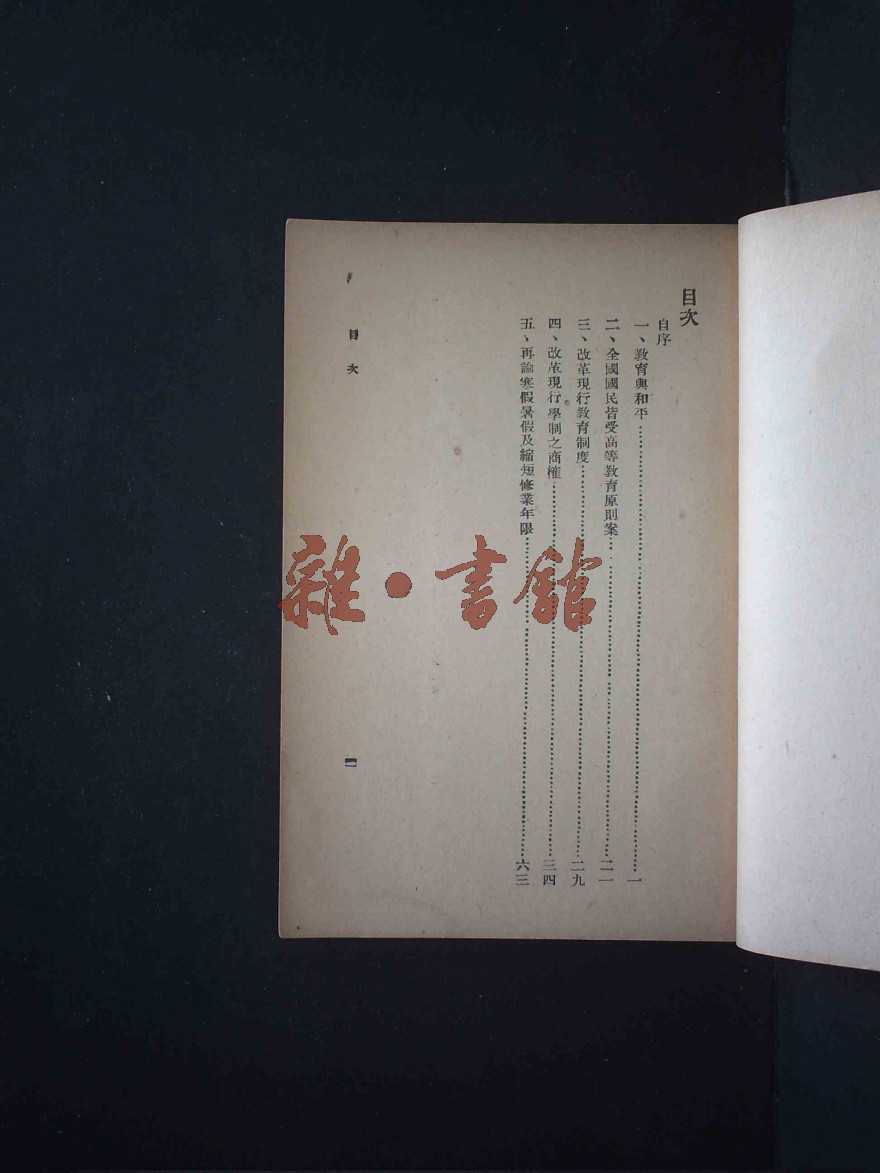 目次
自序
一、教育與和平……一
二、全國國民皆受高等教育原則案……二一
三、改革現行教育制度……二九
四、改革現行學制之商榷……三四
五、再論寒假暑假及縮短修業年限……六三
目次
一
雜·書館